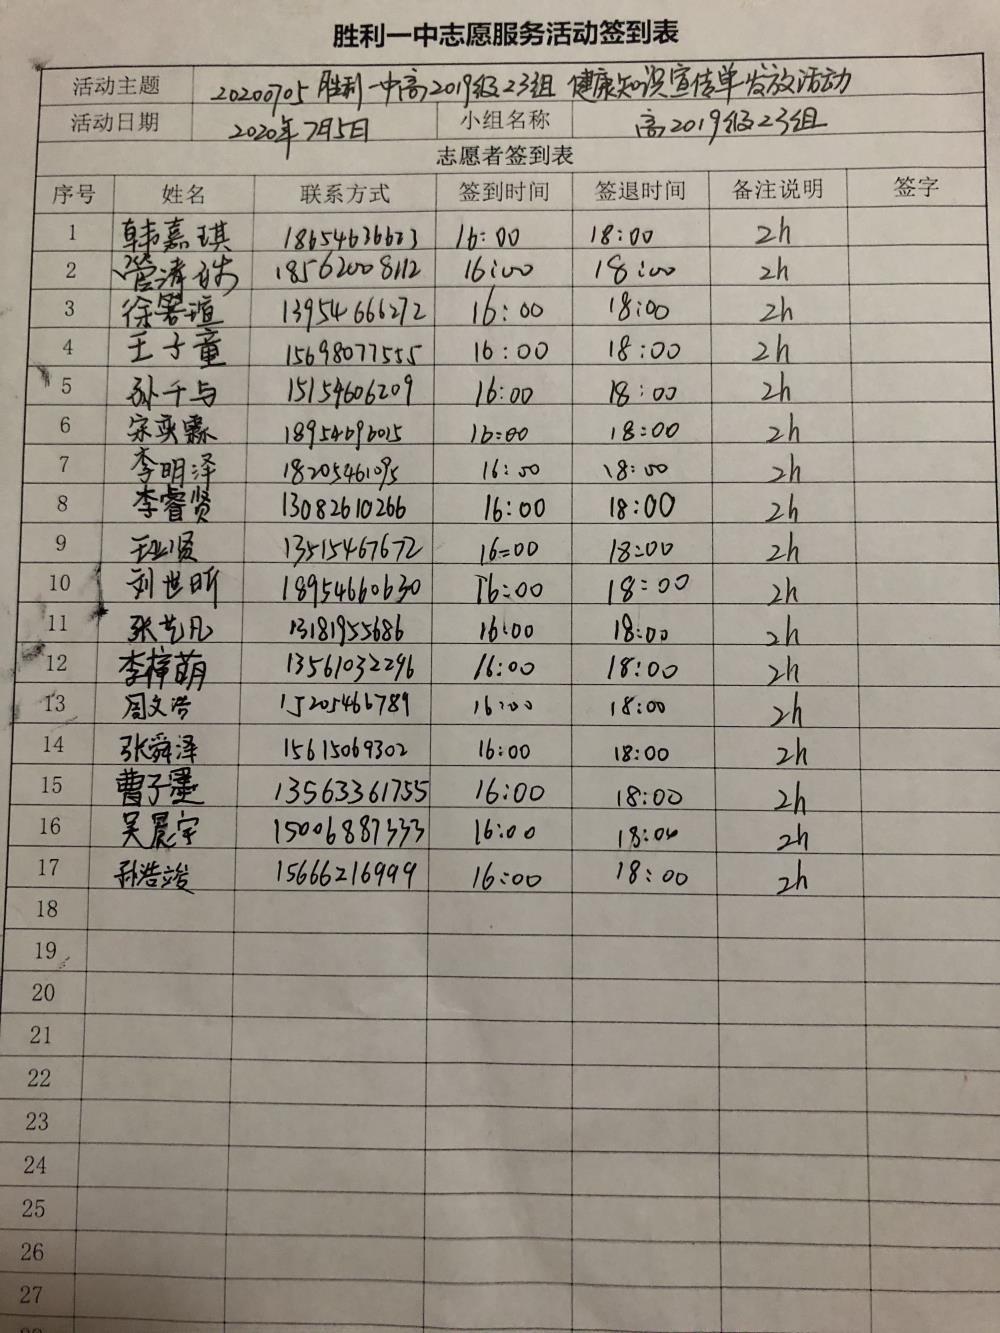 胜利一中志愿服务活动签到表
活动主题 20200705胜利一中高2019级23组 健康知识宣传单发放活动
活动日期 2020年7月5日 小组名称 高2019级23组
志愿者签到表
序号 姓名 联系方式 签到时间 签退时间 备注说明 签字
1 韩嘉琪 18654636623 16:00 18:00 2h
2 18562008112 16:00 18:00 2h
3 13954666272 16:00 18:00 2h
4 王子童 15698077555 16:00 18:00 2h
5 孙千与 15154606209 16:00 18:00 2h
6 宋奕霖 18954696015 16:00 18:00 2h
7 李明泽 18205461095 16:00 18:00 2h
8 李睿贤 13082610266 16:00 18:00 2h
9 13515467672 16:00 18:00 2h
10 刘世昕 18954660630 16:00 18:00 2h
11 张艺凡 13181955686 16:00 18:00 2h
12 李梓萌 13561032296 16:00 18:00 2h
13 周文浩 15205466789 16:00 18:00 2h
14 张舜泽 15615069302 16:00 18:00 2h
15 曹子墨 13563361755 16:00 18:00 2h
16 吴晨宇 15006887333 16:00 18:00 2h
17 孙浩竣 15666216999 16:00 18:00 2h
18
19
20
21
22
23
24
25
26
27